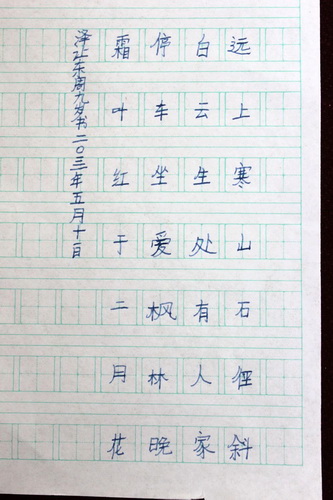 远上寒山石径斜
白云生处有人家
停车坐爱枫林晚
霜叶红于二月花
泽让东周九岁书二〇三年五月十日